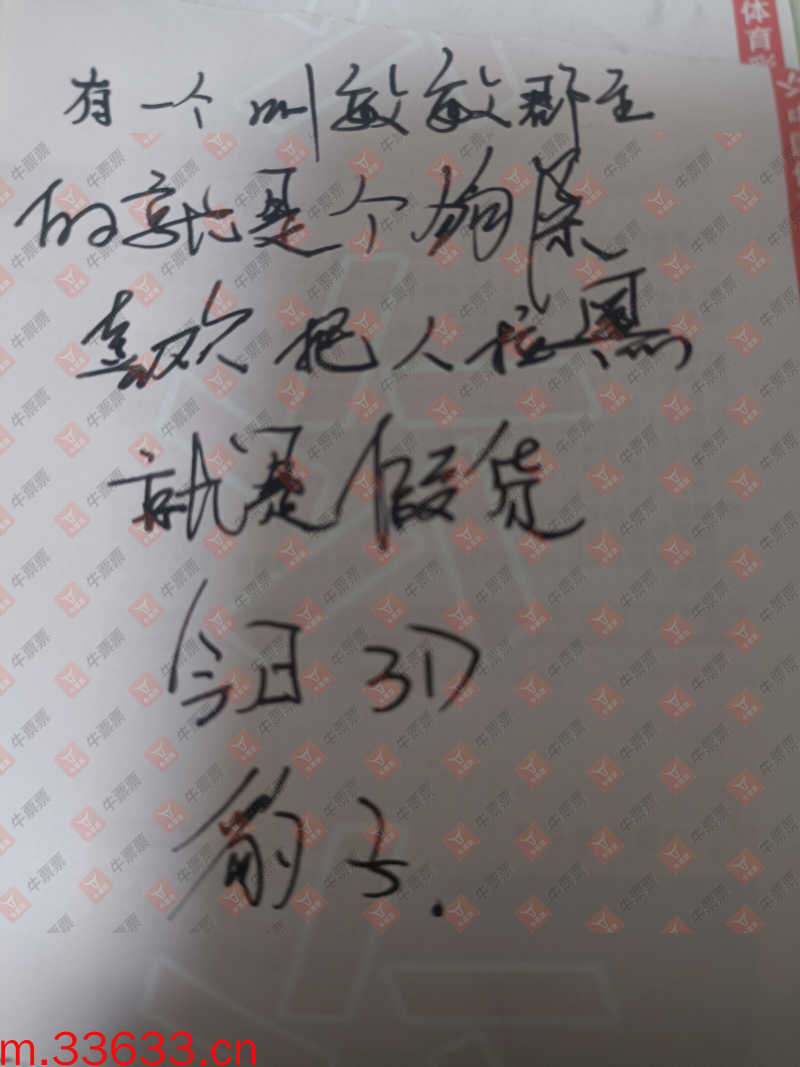 体育
有一个叫敏敏郡主
的就是个狗杂
喜欢把人拉黑
就是假货
今日 3D
豹子.
牛票票
m.33633.cn